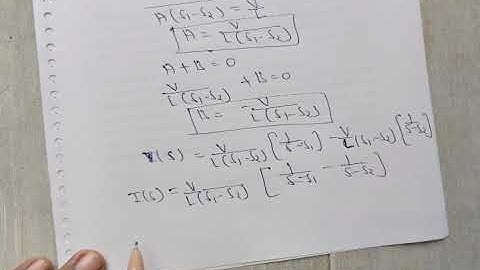 A(s₁-s₂) = V/L
A = V/L(s₁-s₂)
A + B = 0
V/L(s₁-s₂) + B = 0
B = -V/L(s₁-s₂)
I(s) = V/L(s₁-s₂) [1/s-s₁] - V/L(s₁-s₂) [1/s-s₂]
I(s) = V/L(s₁-s₂) [1/s-s₁ - 1/s-s₂]